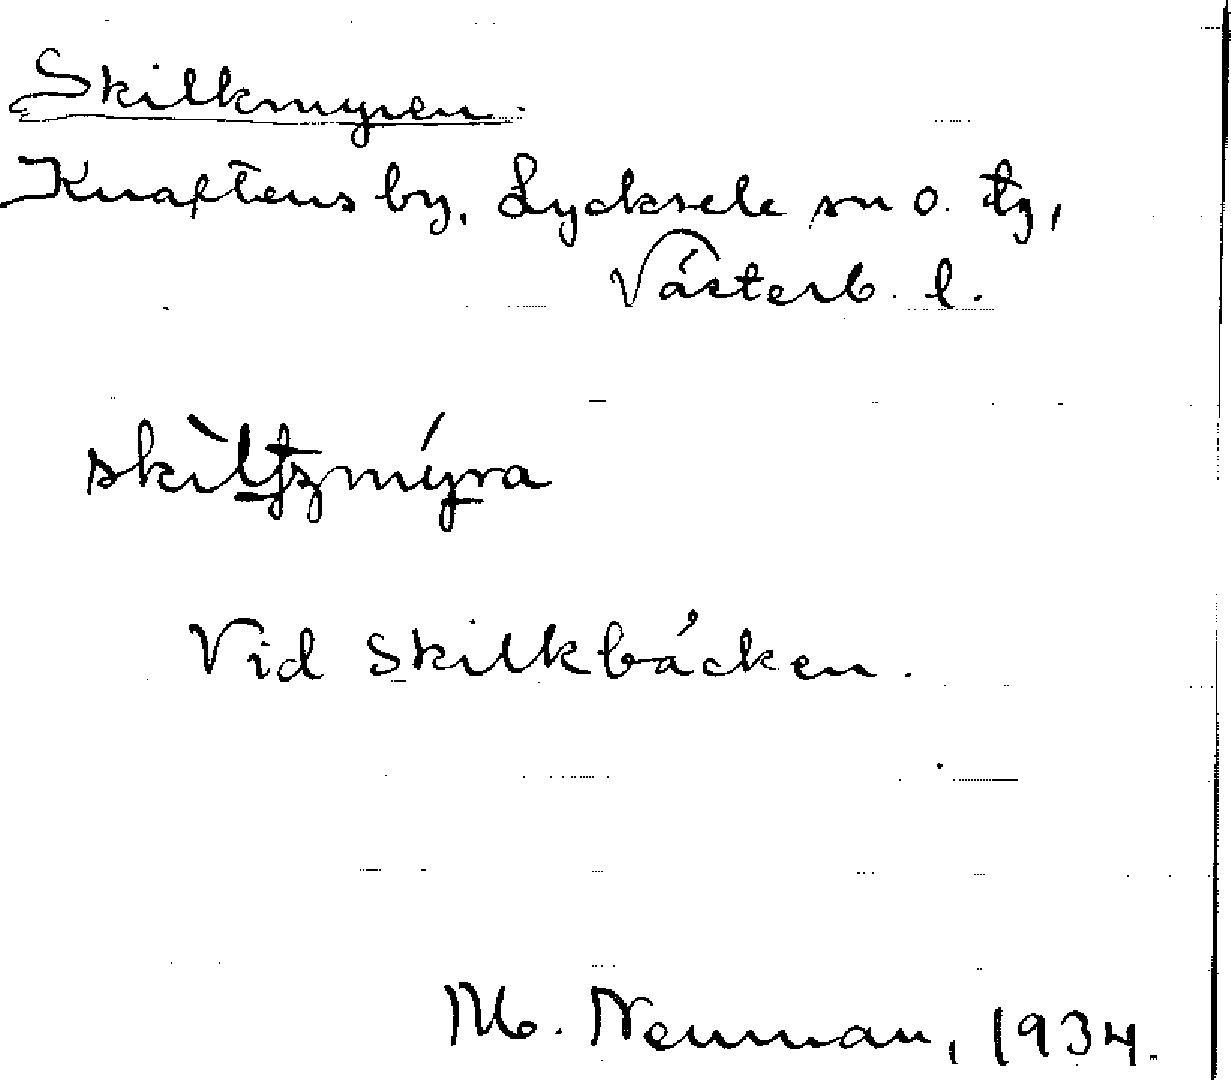 Skilkmyren
Knaftens by, Lycksele sn o. tg,
Västerb. l.
Vid Skilkbäcken.
M. Neuman, 1934.